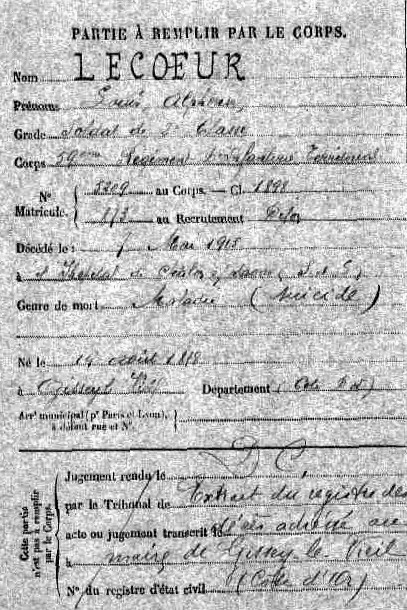 PARTIE À REMPLIR PAR LE CORPS.
Nom LECOEUR
Prénoms Louis Alphonse
Grade Soldat de 2e Classe
Corps 59ème Régiment d'Infanterie Territorial
Nº Matricule. 8209 au Corps. — Cl. 1898
au Recrutement Dijon
Décédé le : 7 Mai 1915
à l'Hôpital de Chalon s/ Saone (S. et L.)
Genre de mort Maladie (Suicide)
Né le 14 août 1878
à Gissey le Vieil Département (Côte d'Or)
Arrt municipal (pr Paris et Lyon), à défaut rue et Nº.
Cette partie n'est pas à remplir par le Corps.
Jugement rendu le
par le Tribunal de Extrait du registre des
acte ou jugement transcrit le décès adressé au
à maire de Gissey le Vieil
Nº du registre d'état civil (Côte d'Or)